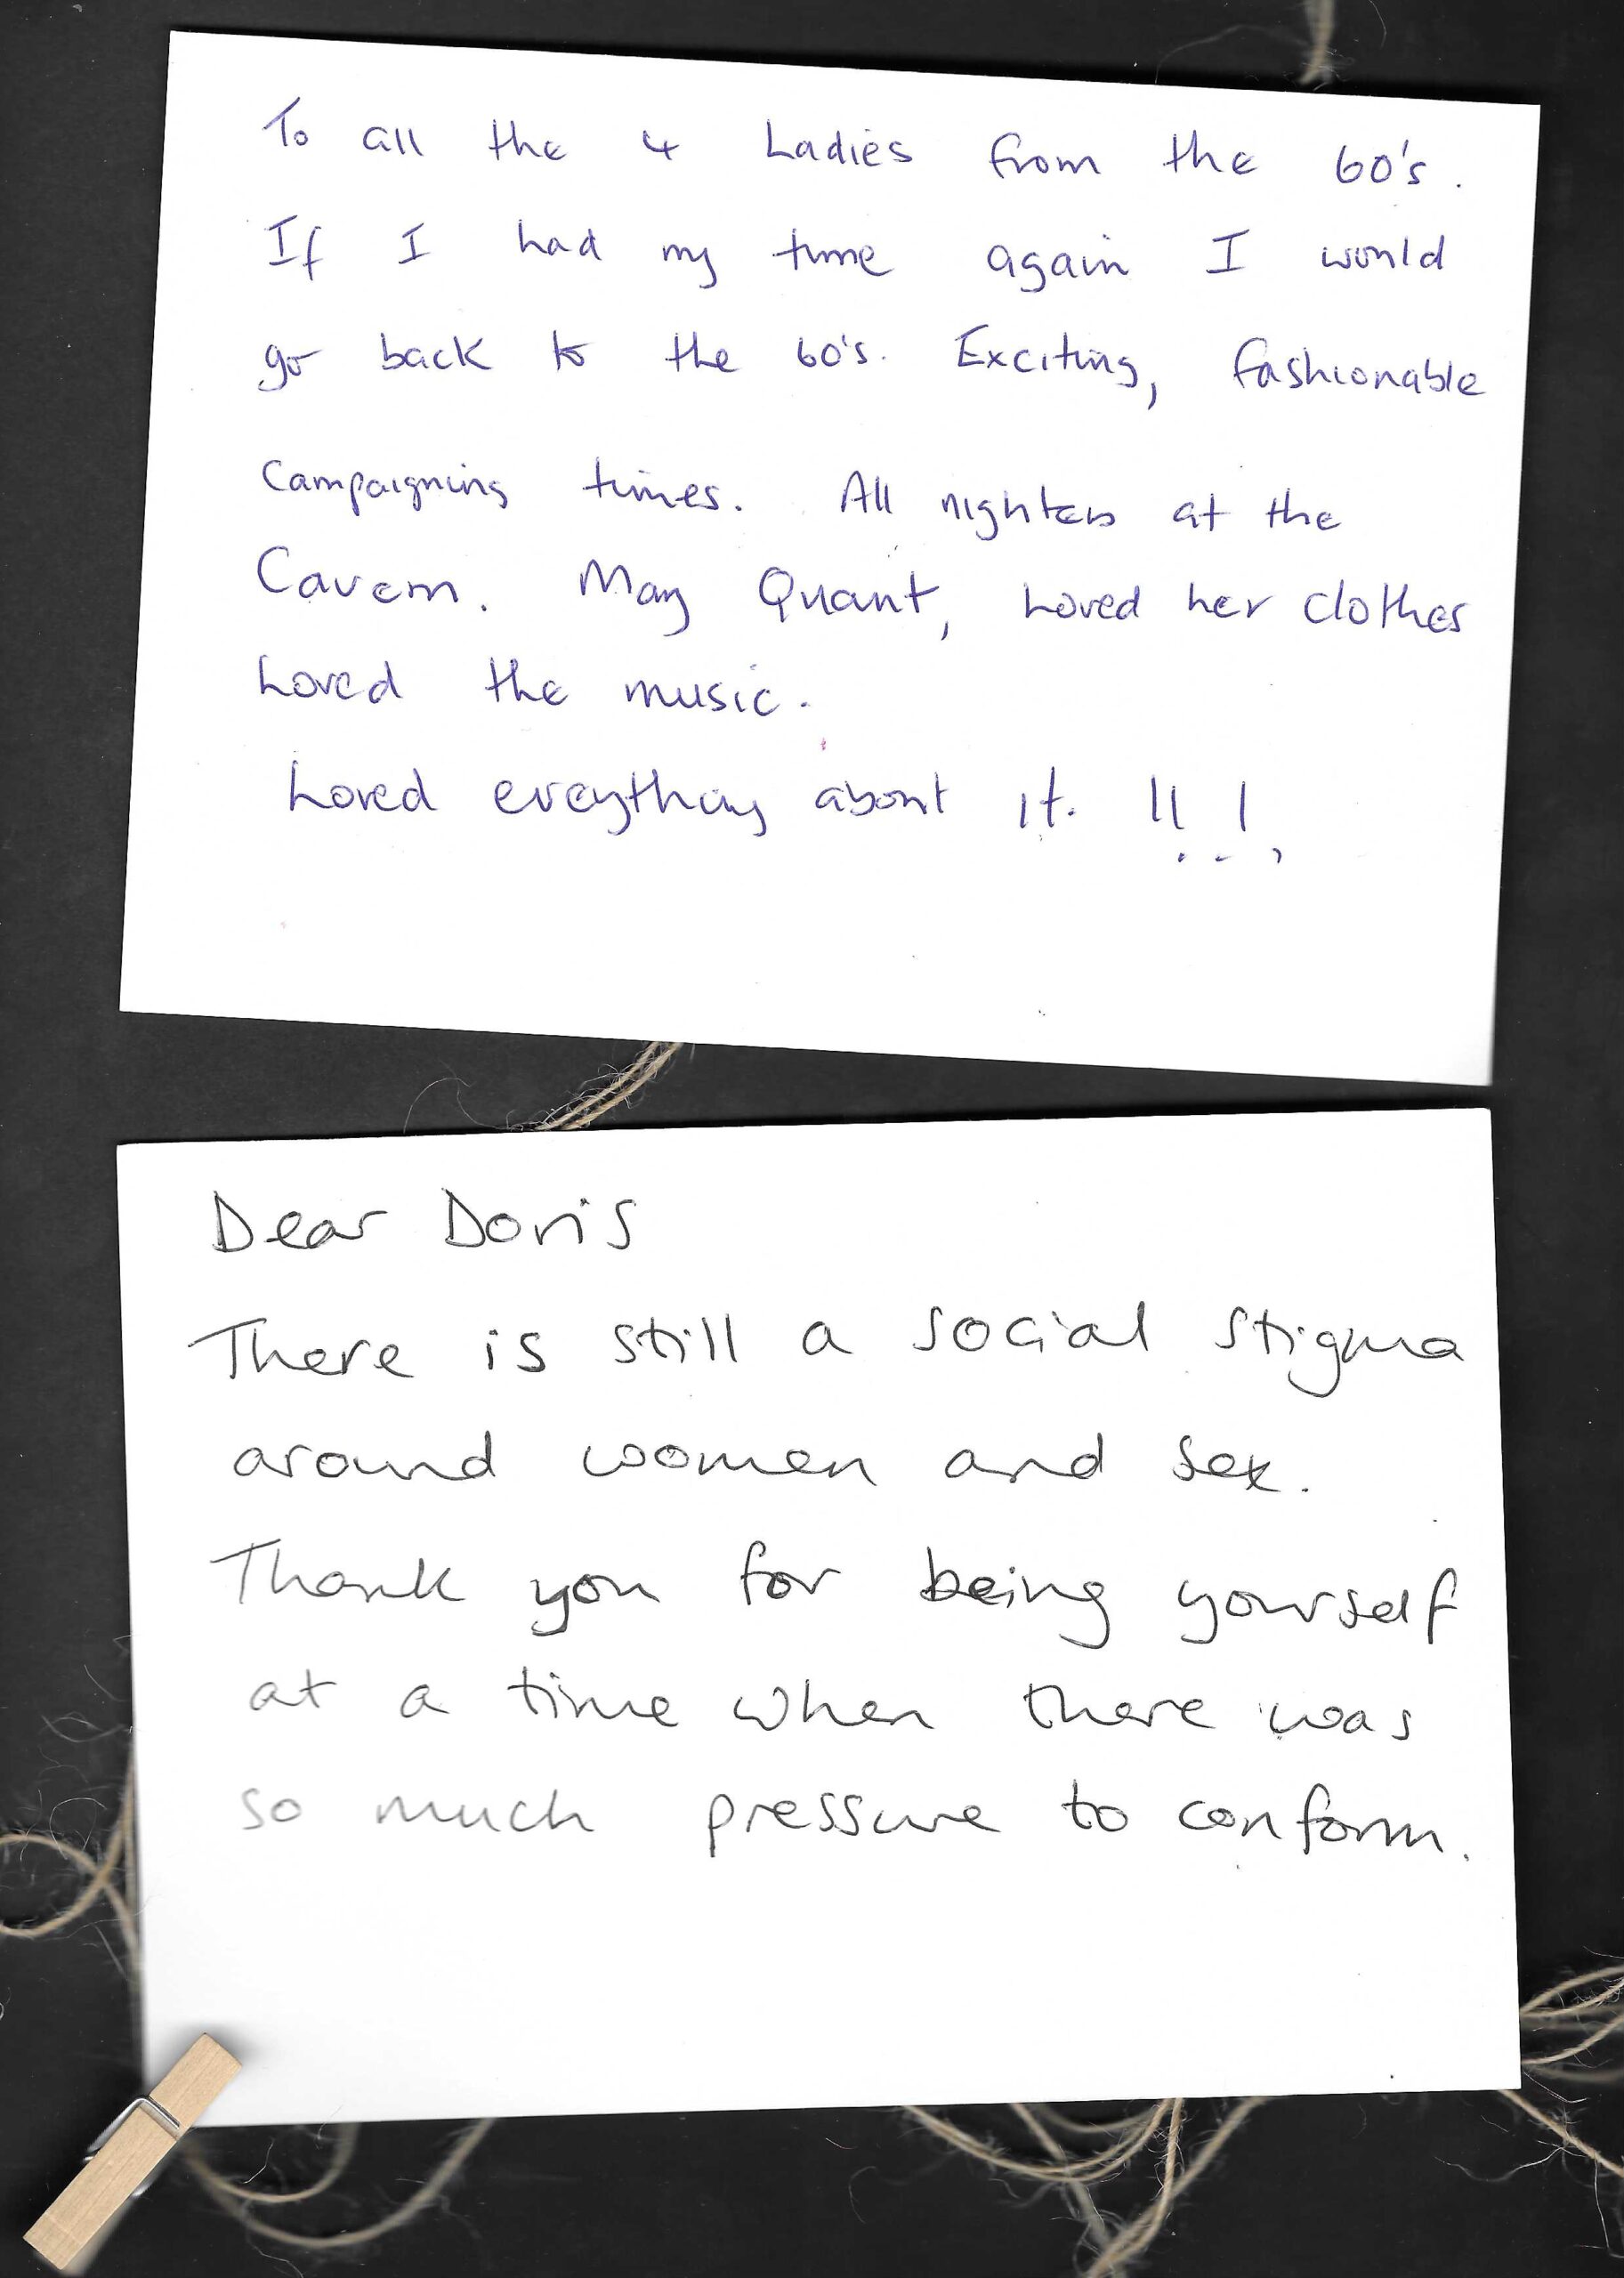 To all the 4 Ladies from the 60's.
If I had my time again I would
go back to the 60's. Exciting, fashionable
Campaigning times. All nighters at the
Cavern. Mary Quant, Loved her clothes
Loved the music.
Loved everything about it. !!!
Dear Doris
There is still a social stigma
around women and sex.
Thank you for being yourself
at a time when there was
so much pressure to conform.